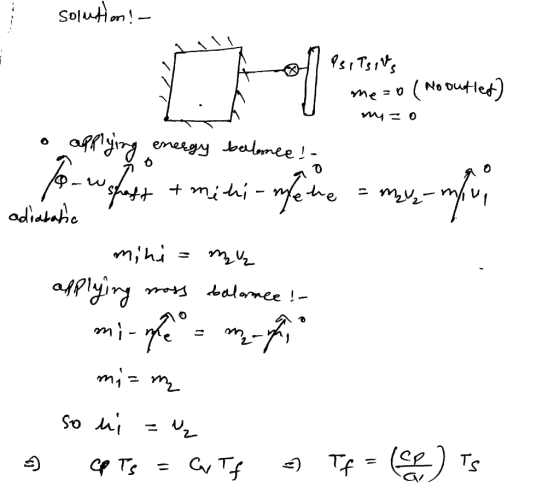 Solution:-
Ps, Ts, Vs
me = 0 (No outlet)
m1 = 0
• applying energy balance:-
Q - Wshaft + mihi - mehe = m2u2 - m1u1
0 0 0
adiabatic
mihi = m2u2
applying mass balance:-
mi - me = m2 - m1
0 0
mi = m2
So hi = u2
⇒ Cp Ts = Cv Tf ⇒ Tf = (Cp/Cv) Ts